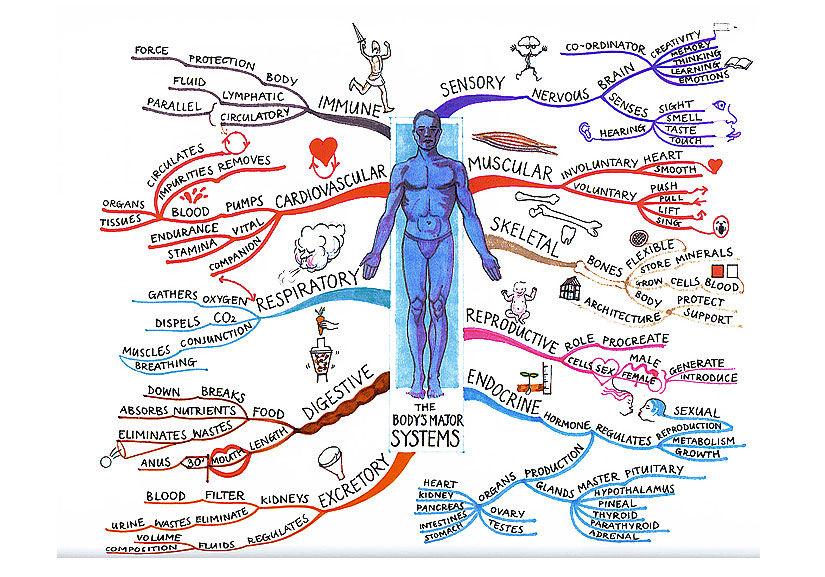 THE
BODY'S MAJOR
SYSTEMS
IMMUNE
BODY
PROTECTION
FORCE
LYMPHATIC
FLUID
CIRCULATORY
PARALLEL
CARDIOVASCULAR
CIRCULATES
IMPURITIES REMOVES
PUMPS
BLOOD
ORGANS
TISSUES
VITAL
ENDURANCE
STAMINA
COMPANION
RESPIRATORY
OXYGEN
GATHERS
CO2
DISPELS
CONJUNCTION
MUSCLES
BREATHING
DIGESTIVE
FOOD
BREAKS
DOWN
ABSORBS NUTRIENTS
ELIMINATES WASTES
LENGTH
MOUTH
30'
ANUS
EXCRETORY
KIDNEYS
FILTER
BLOOD
ELIMINATE
WASTES
URINE
REGULATES
FLUIDS
VOLUME
COMPOSITION
SENSORY
NERVOUS
BRAIN
CO-ORDINATOR
CREATIVITY
MEMORY
THINKING
LEARNING
EMOTIONS
SENSES
SIGHT
SMELL
TASTE
TOUCH
HEARING
MUSCULAR
INVOLUNTARY
HEART
SMOOTH
VOLUNTARY
PUSH
PULL
LIFT
SING
SKELETAL
BONES
FLEXIBLE
STORE MINERALS
GROW CELLS BLOOD
BODY
ARCHITECTURE
PROTECT
SUPPORT
REPRODUCTIVE
ROLE PROCREATE
CELLS SEX
MALE
FEMALE
GENERATE
INTRODUCE
ENDOCRINE
HORMONE
REGULATES
SEXUAL
REPRODUCTION
METABOLISM
GROWTH
PRODUCTION
ORGANS
HEART
KIDNEY
PANCREAS
INTESTINES
STOMACH
OVARY
TESTES
GLANDS
MASTER
PITUITARY
HYPOTHALAMUS
PINEAL
THYROID
PARATHYROID
ADRENAL